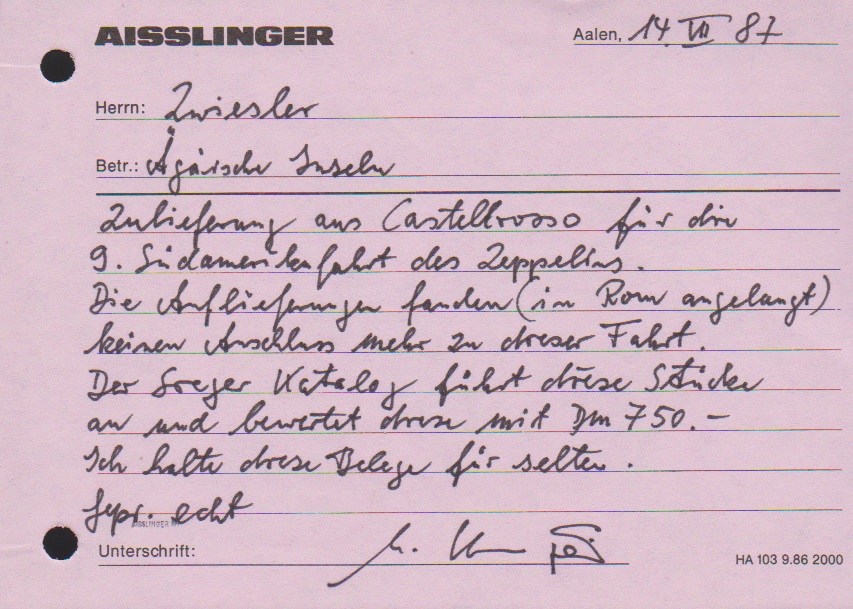 AISSLINGER
Aalen, 14. VII 87
Herrn: Zwiesler
Betr.: Ägäische Inseln
Zulieferung aus Castellrosso für die
9. Südamerikafahrt des Zeppelins.
Die Auflieferungen fanden (in Rom angelangt)
keinen Anschluss mehr zu dieser Fahrt.
Der Sieger Katalog führt diese Stücke
an und bewertet diese mit DM 750.-
Ich halte diese Belege für selten.
gepr. echt
AISSLINGER
Unterschrift:
HA 103 9.86 2000